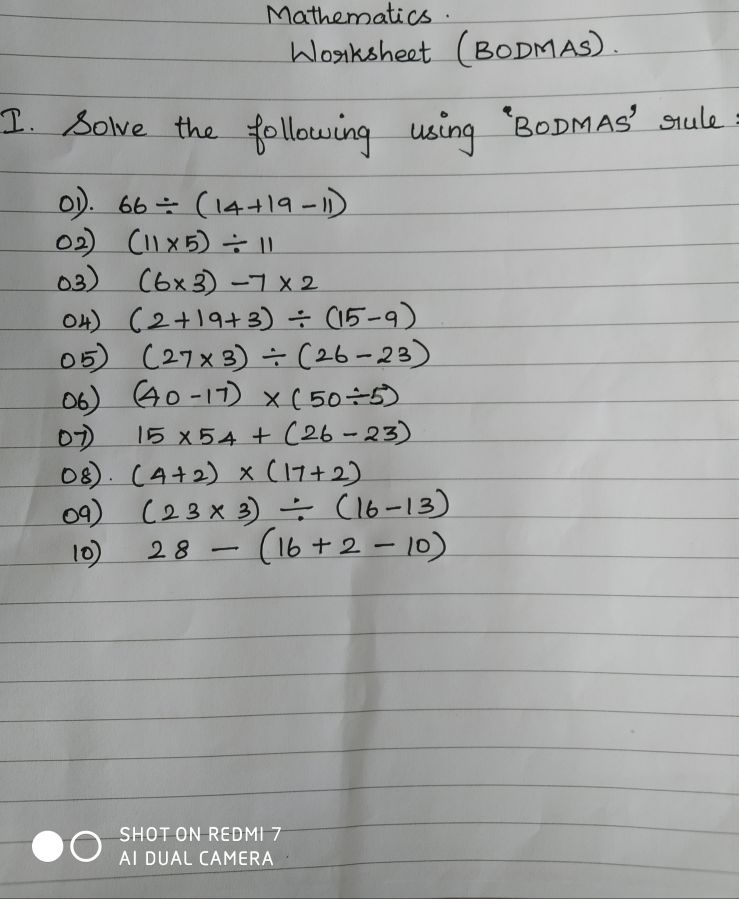 Mathematics.
Worksheet (BODMAS).
I. Solve the following using 'BODMAS' rule:
01). 66 ÷ (14+19-11)
02) (11×5) ÷ 11
03) (6×3) -7 × 2
04) (2+19+3) ÷ (15-9)
05) (27×3) ÷ (26-23)
06) (40-17) × (50÷5)
07) 15 × 54 + (26-23)
08). (4+2) × (17+2)
09) (23×3) ÷ (16-13)
10) 28 - (16+2-10)
SHOT ON REDMI 7
AI DUAL CAMERA